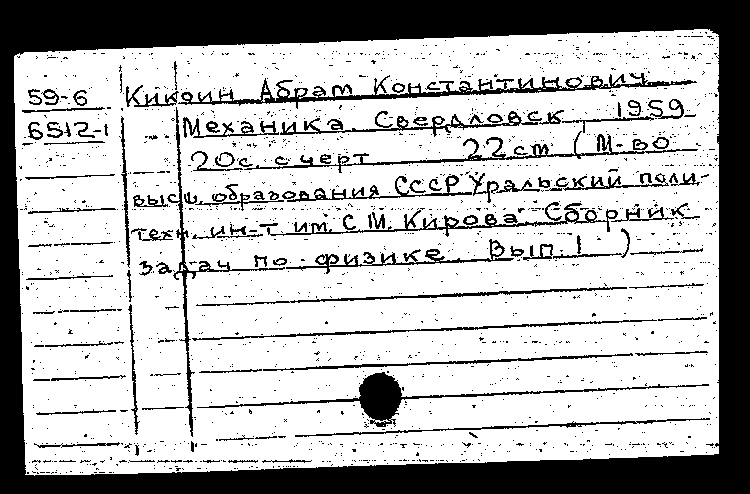 59-6 Кикоин Абрам Константинович
6512-1 Механика. Свердловск, 1959
20с. с черт 22cm (М-во
высш. образования СССР Уральский поли-
техн. ин-т им. С.М. Кирова. Сборник
задач по физике Вып. 1 )